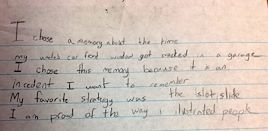 I chose a memory about the time
my car window got rocked in a garage
I chose this memory because it is an
incedent I want to remember
My favorite strategy was the slot, slide
I am proud of the way i ilustrated people